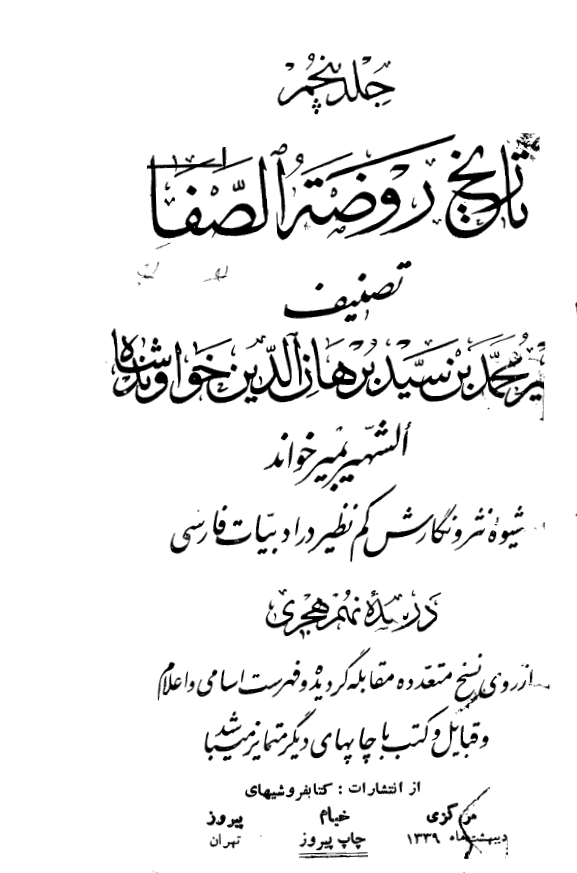 جلد پنجم
تاریخ روضة الصفا
تصنیف
میر محمد بن سید برهان الدین خواوندشاه
الشهیر بمیرخواند
شیوهٔ نثر و نگارش کم نظیر در ادبیات فارسی
در سدهٔ نهم هجری
از روی نسخ متعدده مقابله گردیده و فهرست اسامی و اعلام
و قبایل و کتب با چاپهای دیگر متمایز میباشد
از انتشارات : کتابفروشیهای
مرکزی خیام پیروز
دیبهشت ماه ۱۳۳۹ چاپ پیروز تهران